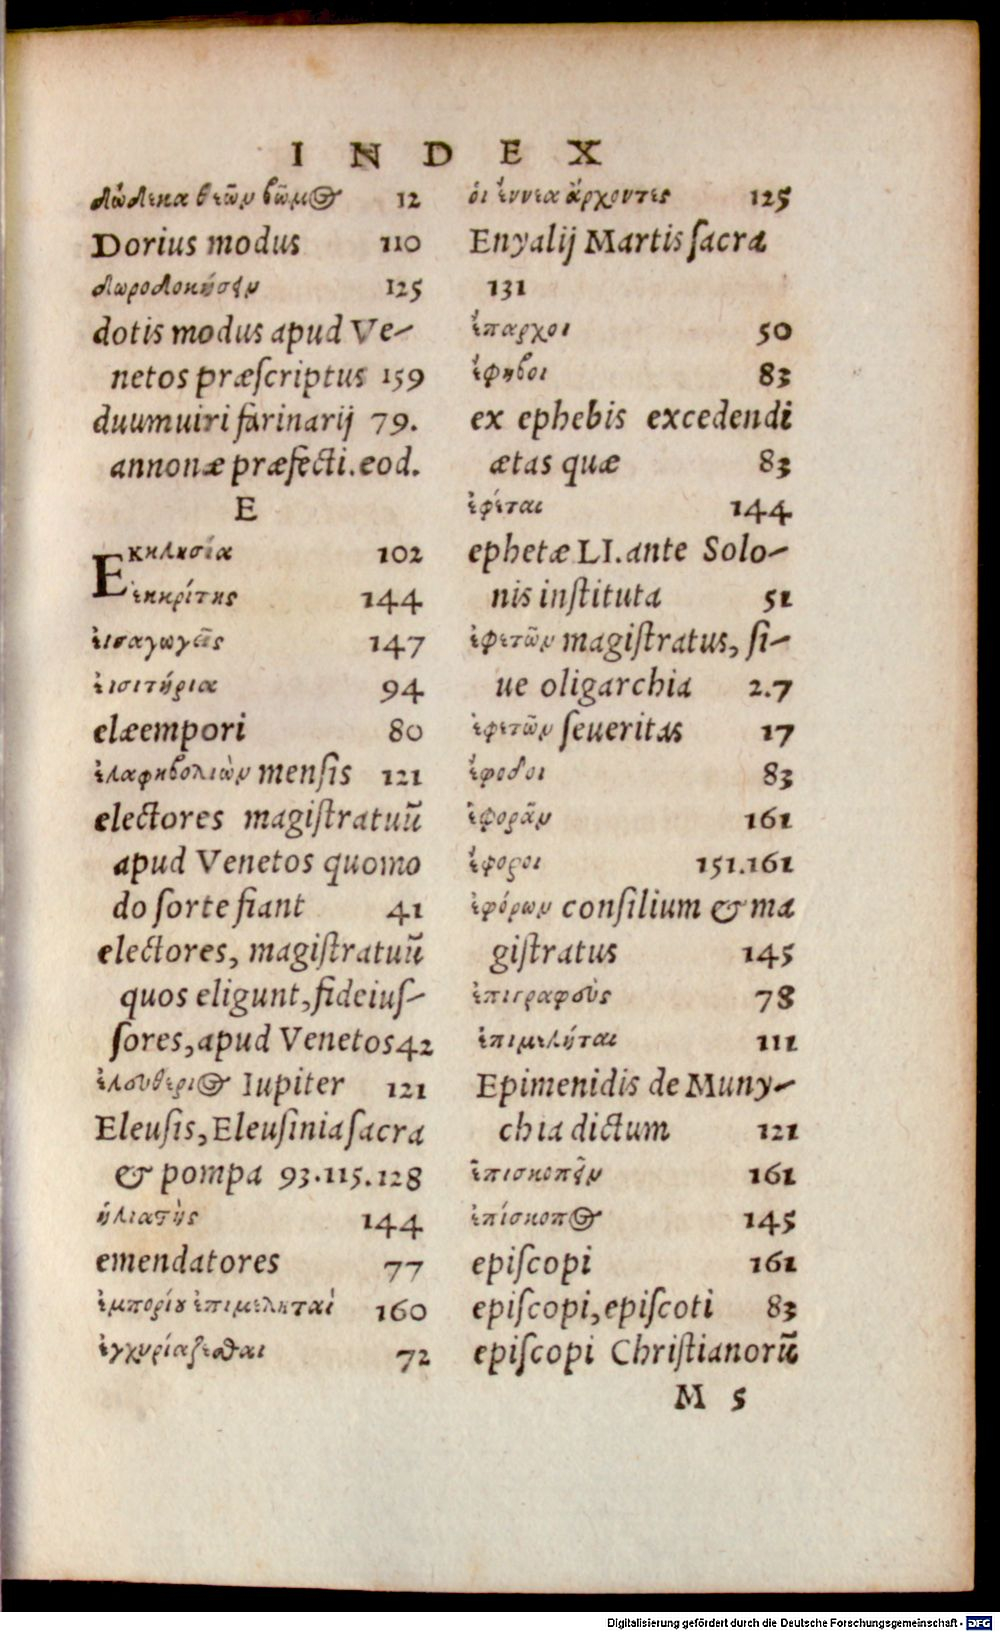 INDEX
δώδεκα θεῶν βῶμος 12
Dorius modus 110
δωροδοκήσειν 125
dotis modus apud Ve-
netos præſcriptus 159
duumuiri farinarij 79.
annonæ præfecti.eod.
E
Εκκλησία 102
ἐκκρίτης 144
ἐισαγωγεῖς 147
ἐισιτήρια 94
elæempori 80
ἐλαφηβολιὼν menſis 121
electores magiſtratuũ
apud Venetos quomo
do ſorte fiant 41
electores, magiſtratuũ
quos eligunt, fideiuſ-
ſores, apud Venetos 42
ἐλευθέριος Iupiter 121
Eleuſis, Eleuſinia ſacra
& pompa 93.115.128
ἡλιαστὴς 144
emendatores 77
ἐμπορίου ἐπιμεληταὶ 160
ἐγχυρίαζεσθαι 72
ὁι ἐννεα ἄρχοντες 125
Enyalij Martis ſacra
131
ἔπαρχοι 50
ἔφηβοι 83
ex ephebis excedendi
ætas quæ 83
ἐφέται 144
ephetæ LI. ante Solo-
nis inſtituta 51
ἐφετῶν magiſtratus, ſi-
ue oligarchia 2.7
ἐφετῶν ſeueritas 17
ἔφοδοι 83
ἐφορᾶν 161
ἔφοροι 151.161
ἐφόρων conſilium & ma
giſtratus 145
ἐπιγραφοὺς 78
ἐπιμελήται 111
Epimenidis de Muny-
chia dictum 121
ἐπισκοπεῖν 161
ἐπίσκοπος 145
epiſcopi 161
epiſcopi, epiſcoti 83
epiſcopi Chriſtianorũ
M 5
Digitalisierung gefördert durch die Deutsche Forschungsgemeinschaft - DFG